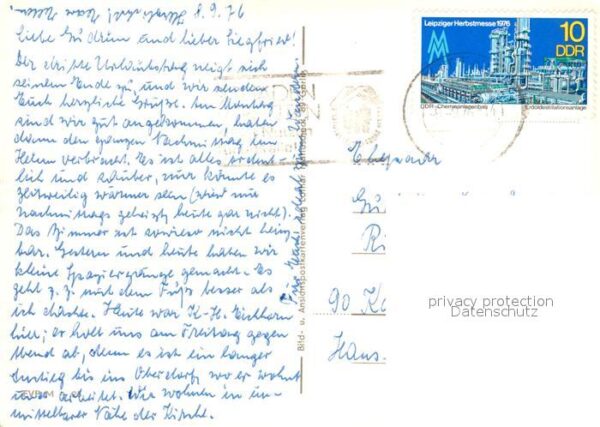 8.9.76
Liebe Gudrun und lieber Siegfried!
Der dritte Urlaubstag neigt sich
seinem Ende zu, und wir senden
Euch herzliche Grüße. Am Montag
sind wir gut angekommen, haben
dann den ganzen Nachmittag im
Heim verbracht. Es ist alles ordent-
lich und sauber, nur könnte es
zeitweilig wärmer sein (wird nur
nachmittags geheizt, heute gar nicht).
Das Zimmer ist sowieso nicht heiz-
bar. Gestern und heute haben wir
kleine Spaziergänge gemacht. Es
geht z. Z. mit dem Fuß besser als
ich dachte. Heute war K.-H. Eichhorn
hier; er holt uns am Freitag gegen
Abend ab, denn es ist ein langer
Anstieg bis ins Oberdorf, wo er wohnt
und arbeitet. Wir wohnen in un-
mittelbarer Nähe der Kirche.
Leipziger Herbstmesse 1976
10
DDR
DDR-Chemieanlagenbau
Rohöldestillationsanlage
Bild- u. Ansichtskartenverlag
Ehepaar
90 Ka
Hans-
privacy protection
Datenschutz